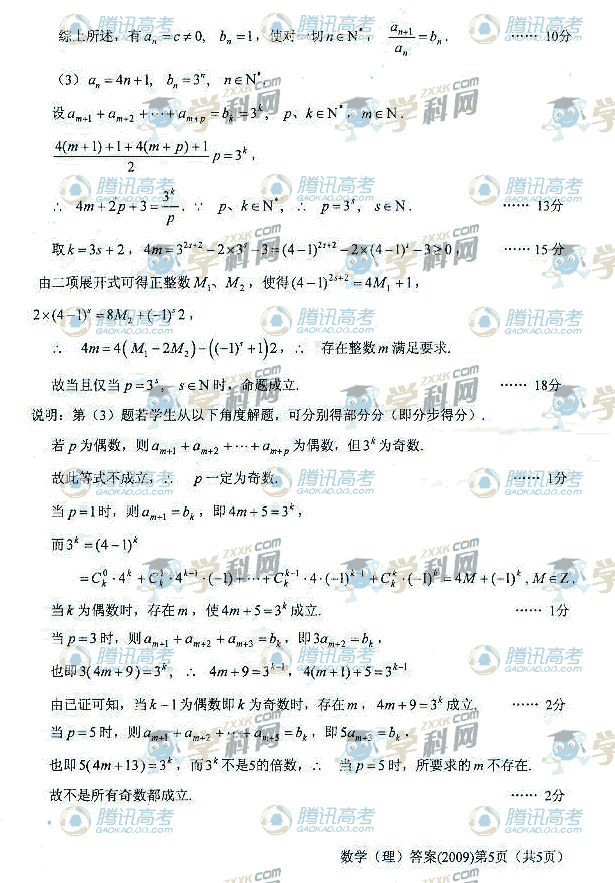 综上所述，有 aₙ = c ≠ 0, bₙ = 1，使对一切 n∈N*，aₙ₊₁/aₙ = bₙ. …… 10分
（3）aₙ = 4n+1, bₙ = 3ⁿ, n∈N*,
设 aₘ₊₁ + aₘ₊₂ + ⋯ + aₘ₊ₚ = bₖ = 3ᵏ, p、k∈N*, m∈N.
(4(m+1)+1+4(m+p)+1)/2 p = 3ᵏ,
∴ 4m+2p+3 = 3ᵏ/p. ∵ p、k∈N*, ∴ p=3ˢ, s∈N. …… 13分
取 k=3s+2, 4m=3²ˢ⁺²−2×3ˢ−3=(4−1)²ˢ⁺²−2×(4−1)ˢ−3≥0, …… 15分
由二项展开式可得正整数 M₁、M₂，使得(4−1)²ˢ⁺²=4M₁+1,
2×(4−1)ˢ=8M₂+(−1)ˢ2,
∴ 4m=4(M₁−2M₂)−((−1)ˢ+1)2, ∴ 存在整数 m 满足要求.
故当且仅当 p=3ˢ, s∈N 时，命题成立. …… 18分
说明：第（3）题若学生从以下角度解题，可分别得部分分（即分步得分）.
若 p 为偶数，则 aₘ₊₁ + aₘ₊₂ + ⋯ + aₘ₊ₚ 为偶数，但 3ᵏ 为奇数.
故此等式不成立，∴ p 一定为奇数. …… 1分
当 p=1 时，则 aₘ₊₁ = bₖ，即 4m+5=3ᵏ,
而 3ᵏ=(4−1)ᵏ
=Cₖ⁰·4ᵏ+Cₖ¹·4ᵏ⁻¹·(−1)+⋯+Cₖᵏ⁻¹·4·(−1)ᵏ⁻¹+Cₖᵏ·(−1)ᵏ=4M+(−1)ᵏ, M∈Z,
当 k 为偶数时，存在 m，使 4m+5=3ᵏ 成立. …… 1分
当 p=3 时，则 aₘ₊₁ + aₘ₊₂ + aₘ₊₃ = bₖ，即 3aₘ₊₂ = bₖ,
也即 3(4m+9)=3ᵏ, ∴ 4m+9=3ᵏ⁻¹, 4(m+1)+5=3ᵏ⁻¹
由已证可知，当 k−1 为偶数即 k 为奇数时，存在 m，4m+9=3ᵏ 成立. …… 2分
当 p=5 时，则 aₘ₊₁ + aₘ₊₂ + ⋯ + aₘ₊₅ = bₖ，即 5aₘ₊₃ = bₖ,
也即 5(4m+13)=3ᵏ，而 3ᵏ 不是5的倍数，∴ 当 p=5 时，所要求的 m 不存在.
故不是所有奇数都成立. …… 2分
数学（理）答案(2009)第5页（共5页）
腾讯高考
GAOKAO.QQ.COM
学科网
ZXXK.COM